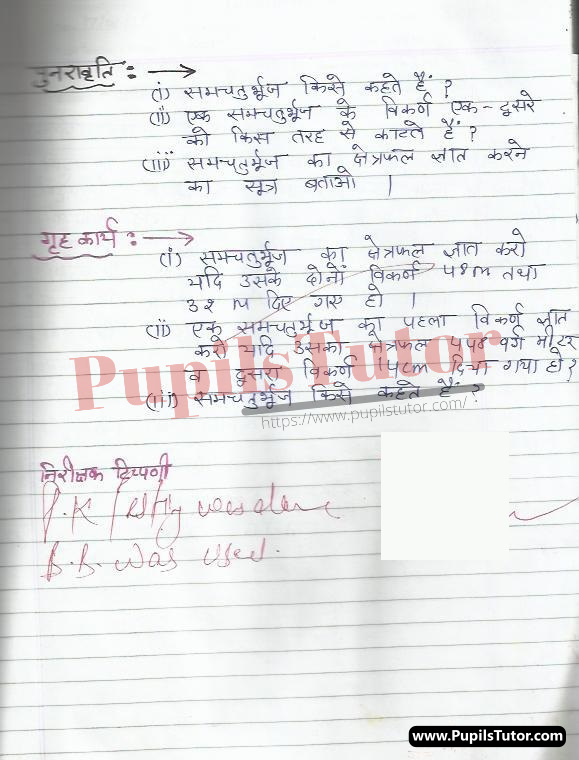 पुनरावृति : →
(i) समचतुर्भुज किसे कहते हैं ?
(ii) एक समचतुर्भुज के विकर्ण एक-दूसरे
को किस तरह से काटते हैं ?
(iii) समचतुर्भुज का क्षेत्रफल ज्ञात करने
का सूत्र बताओ |
गृह कार्य : →
(i) समचतुर्भुज का क्षेत्रफल ज्ञात करो
यदि उसके दोनों विकर्ण तथा
दिए गए हो |
(ii) एक समचतुर्भुज का पहला विकर्ण ज्ञात
करो यदि उसका क्षेत्रफल वर्ग मीटर
व दूसरा विकर्ण दिया गया हो ?
(iii) समचतुर्भुज किसे कहते हैं ?
PupilsTutor
https://www.pupilstutor.com/
निरीक्षक टिप्पणी
P.K Testing was done
B.B. was used.
www.PupilsTutor.com